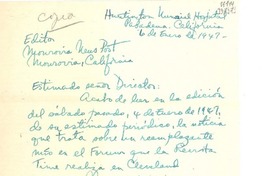 Copia
Huntington Memorial Hospital
Pasadena, California
6 de Enero de 1947.
Editor
Monrovia News Post
Monrovia, California
Estimado señor Director:
Acabo de leer en la edición
del sábado pasado, 4 de Enero de 1947,
de su estimado periódico, la noticia
que trata sobre un reemplazante
mío en el Forum que la Revista
Time realiza en Cleveland